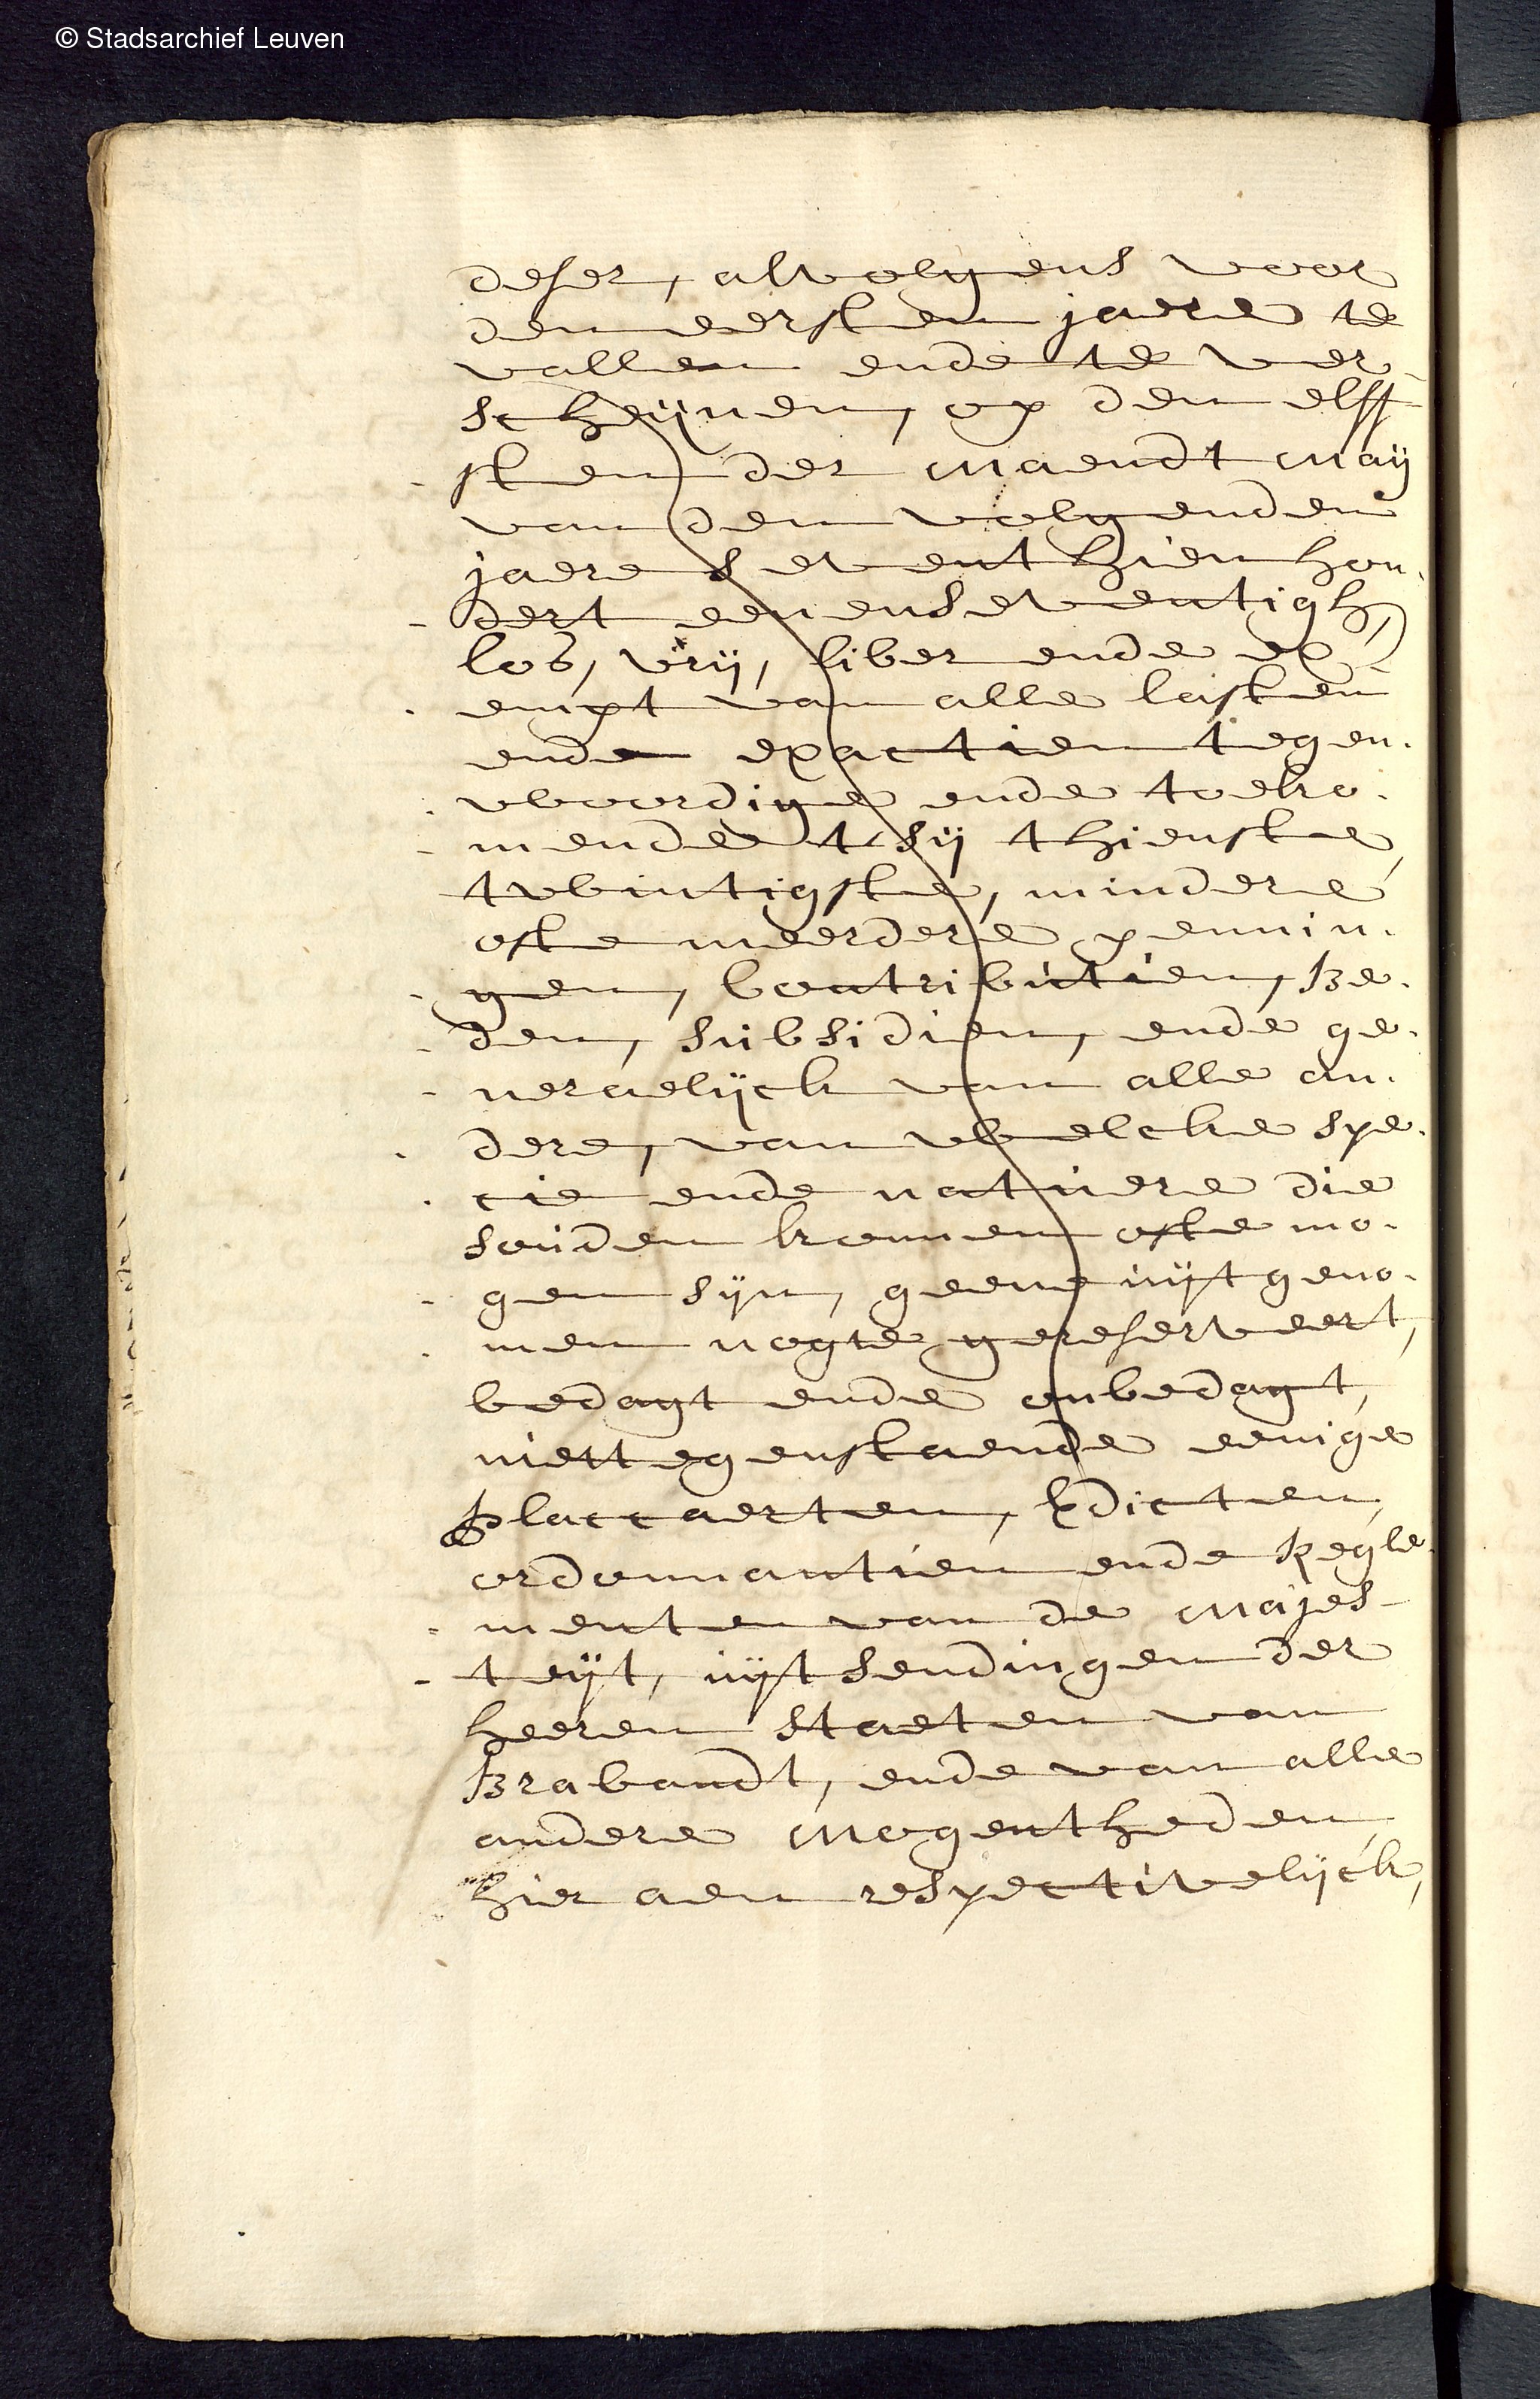 © Stadsarchief Leuven
deser, alvolgens voor
den eersten jaere te
vallen ende te ver-
scheijnen, op den elff-
sten der maendt maij
van den volgenden
jaere seventhien hon-
dert eenenseventigh,
los, vrij, liber ende ex-
empt van alle lasten
ende exactien tegen-
woordige ende toeko-
mende tsij thienste,
twintigste, mindere
ofte meerdere pennin-
gen, Contributien, Be-
den, subsidien, ende ge-
neraelijck van alle an-
dere, van welcke spe-
cie ende natuere die
souden konnen ofte mo-
gen sijn, geene uijtgeno-
men nogte gereserveert,
bedagt ende onbedagt,
niettegenstaende eenige
Placcaerten, Edicten,
ordonnantien ende Regle-
menten van de Majes-
teijt, uijtsendingen der
heeren Staeten van
Brabandt, ende van alle
andere Mogentheden,
hier aen respectivelijck,